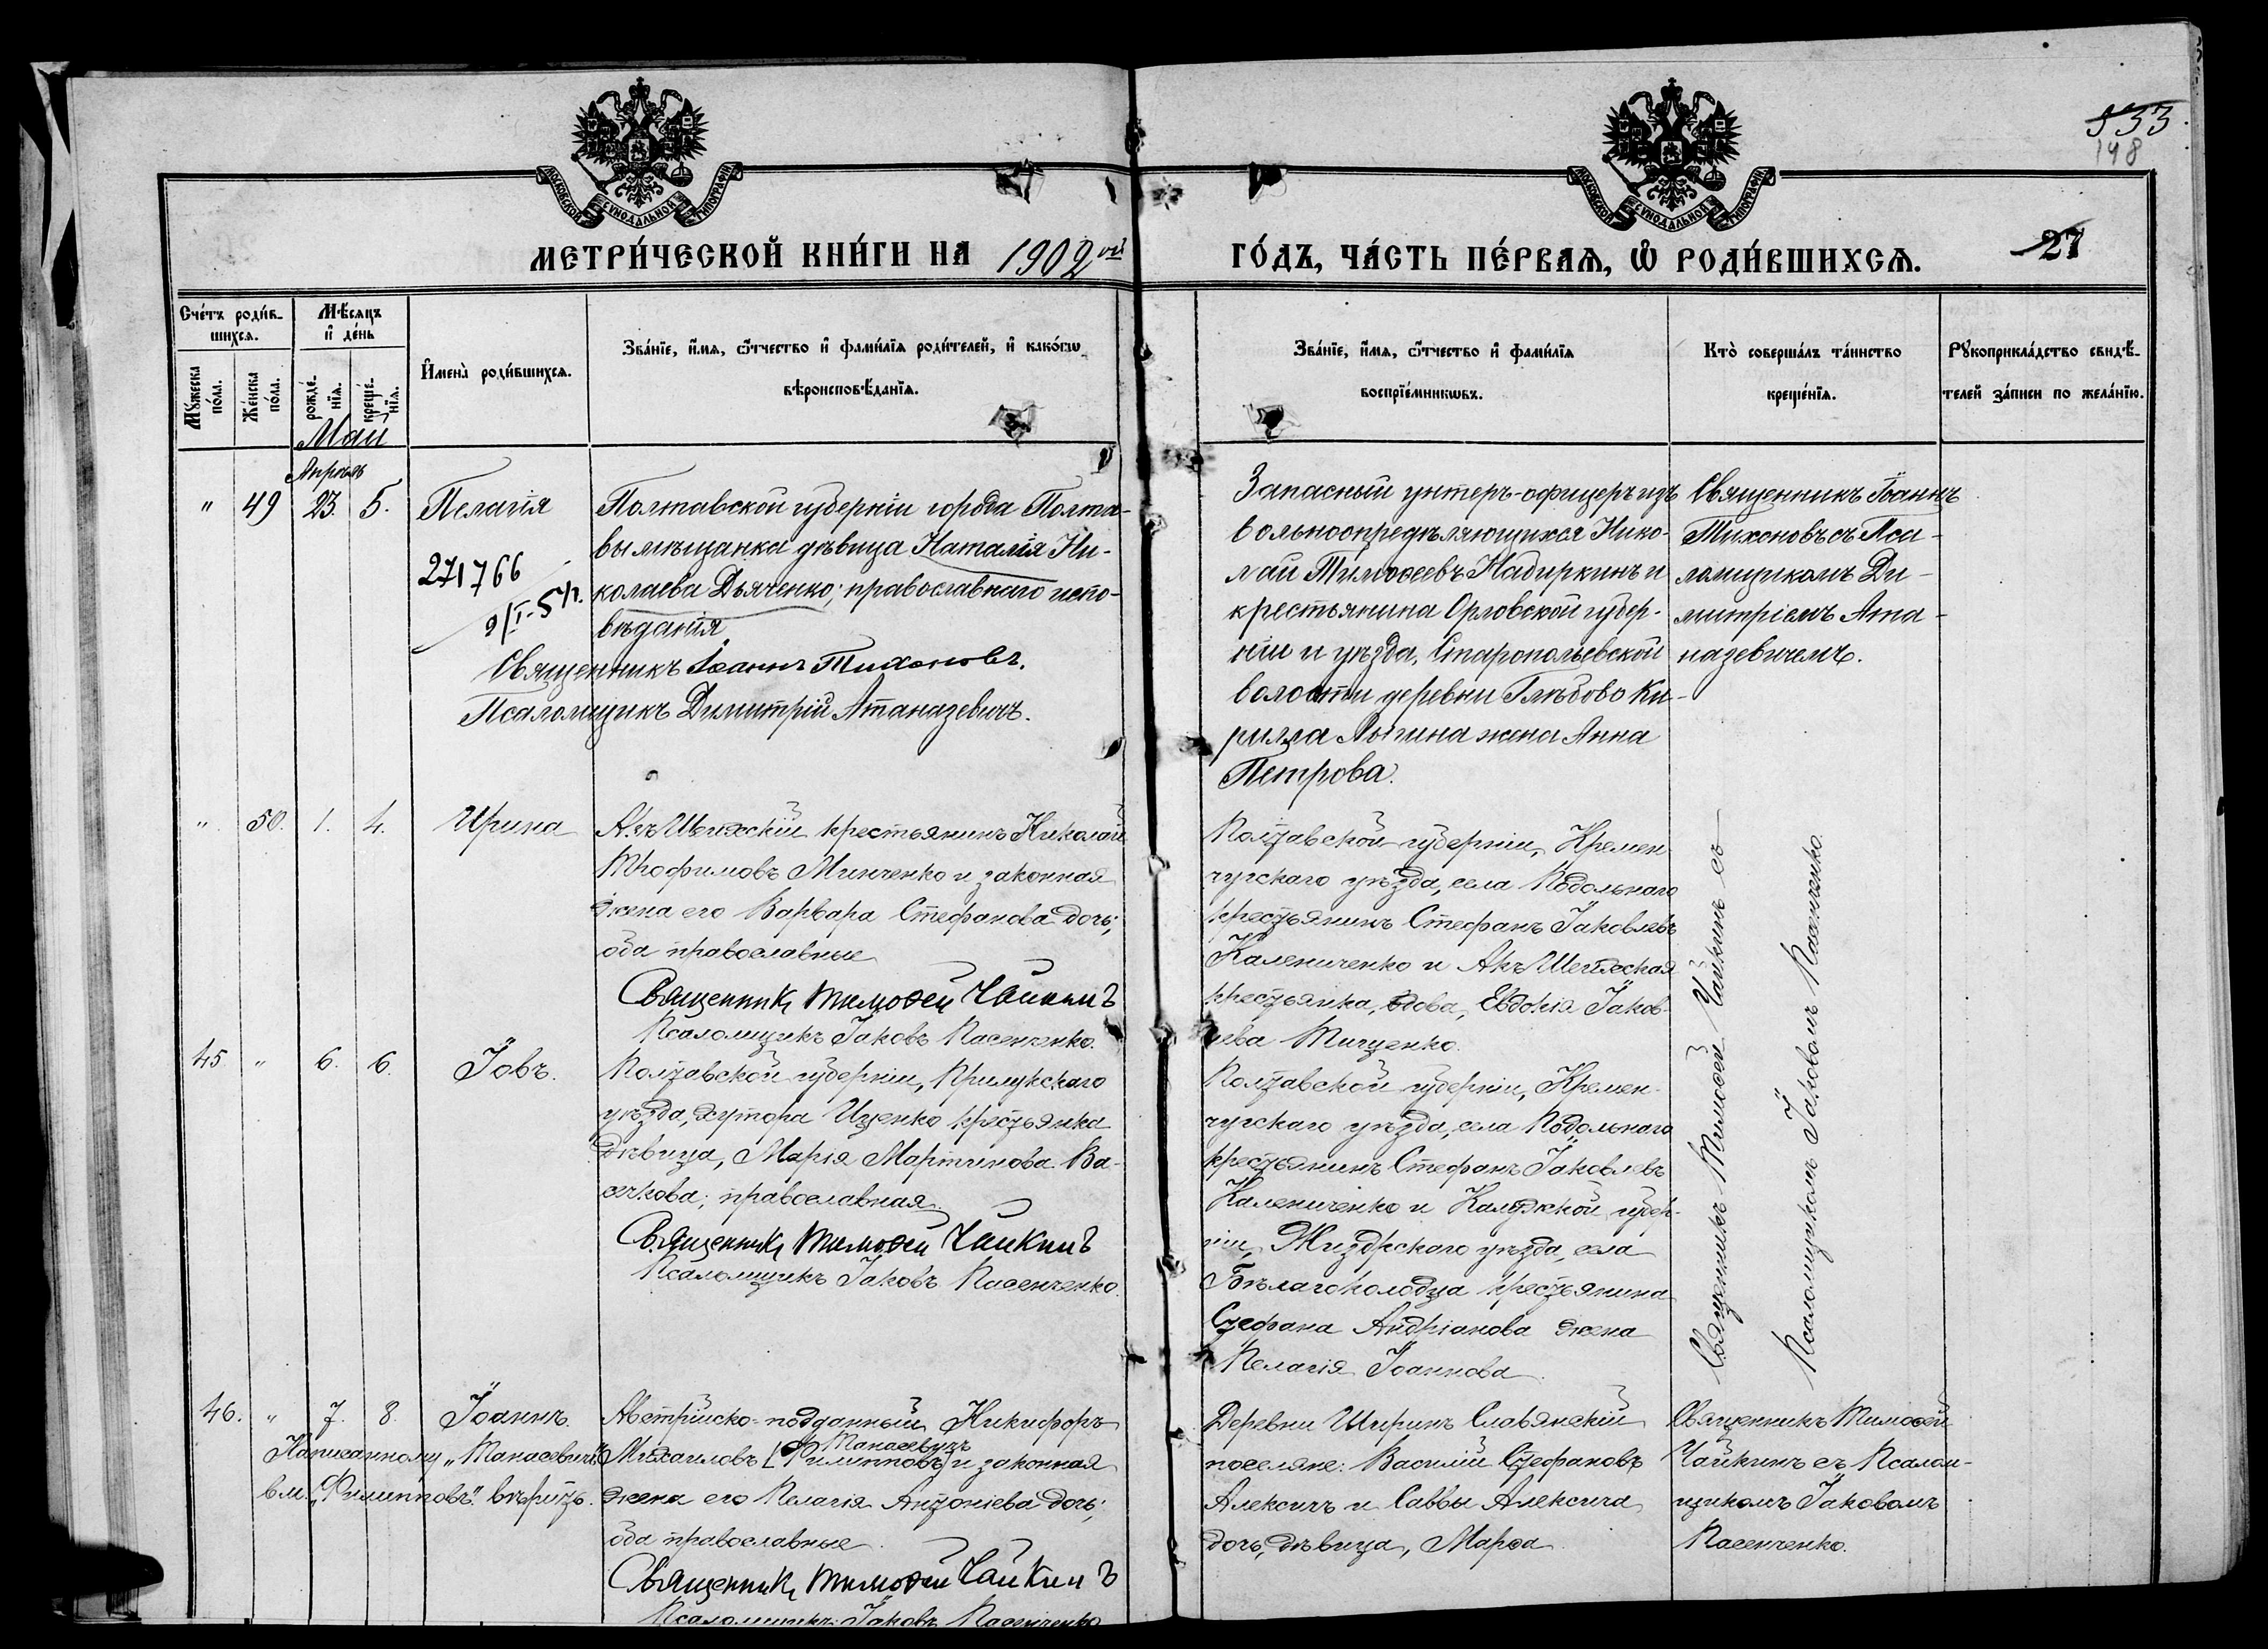 533
148
МОСКОВСКОЙ СѴНОДАЛЬНОЙ ТИПОГРАФІИ
МОСКОВСКОЙ СѴНОДАЛЬНОЙ ТИПОГРАФІИ
МЕТРИ́ЧЕСКОЙ КНИ́ГИ НА 1902ой
ГО́ДЪ, ЧА́СТЬ ПЕ́РВАѦ, Ѡ҆ РОДИ́ВШИХСѦ.
27
Сче́тъ роди́в-
шихсѧ.
Мꙋ́жеска по́ла.
Же́нска по́ла.
Мѣ́сѧцъ
и҆ де́нь
рожде́-
нїѧ.
креще́-
нїѧ.
И҆мена̀ роди́вшихсѧ.
Зва́нїе, и҆́мѧ, ѻ҆́тчество и҆ фами́лїѧ роди́телей, и҆ како́гѡ
вѣроисповѣ́данїѧ.
Зва́нїе, и҆́мѧ, ѻ҆́тчество и҆ фами́лїѧ
воспрїе́мникѡвъ.
Кто̀ соверша́лъ та́инство
креще́нїѧ.
Рꙋкоприкла́дство свидѣ́-
телей за́писи по жела́нїю.
Май
Апрѣль
" 49 23. 5. Пелагія
271766
9/I-5
Полтавской губерніи города Полта-
вы мѣщанка дѣвица Наталія Ни-
колаева Дьяченко; православнаго испо-
вѣданія
Священникъ Іоаннъ Тихоновъ.
Псаломщикъ Димитрій Атаназевичъ.
Запасный унтеръ-офицеръ изъ
вольноопредѣляющихся Нико-
лай Тимоѳеевъ Надиркинъ и
крестьянина Орловской губер-
ніи и уѣзда, Старопольевской
волости деревни Глѣбово Ки-
рилла Лыгина жена Анна
Петрова.
Священникъ Іоаннъ
Тихоновъ съ Пса-
ломщикомъ Ди-
митріемъ Ата-
назевичемъ.
" 50. 1. 4. Ирина
Акъ-Шеихскій крестьянинъ Николай
Трофимовъ Минченко и законная
жена его Варвара Стефанова дочь;
оба православные
Священникъ Тимоѳей Чайкинъ
Псаломщикъ Іаковъ Пасенченко.
Полтавской губерніи, Кремен
чугскаго уѣзда, села Подольнаго
крестьянинъ Стефанъ Іаковлевъ
Калениченко и Акъ-Шеихская
крестьянка, вдова, Евдокія Іаков-
лева Тищенко.
Священникъ Тимоѳей Чайкинъ съ
Псаломщикомъ Іаковомъ Пасенченко.
45 " 6. 6. Іовъ.
Полтавской губерніи, Прилукскаго
уѣзда, хутора Иценко крестьянка
дѣвица, Марія Мартинова Ва-
сечкова; православная.
Священникъ Тимоѳей Чайкинъ
Псаломщикъ Іаковъ Пасенченко.
Полтавской губерніи, Кремен-
чугскаго уѣзда, села Подольнаго
крестьянинъ Стефанъ Іаковлевъ
Калениченко и Калужской губер-
ніи, Жиздрскаго уѣзда, села
Бѣлагоколодца крестьянина
Стефана Андріанова жена
Пелагія Іоаннова.
46. " 7. 8. Іоаннъ.
Написанному „Танасевичъ"
вм. „Филипповъ" вѣрить.
Австрійско-подданный Никифоръ
Танасевичъ
Михаиловъ [Филипповъ] и законная
жена его Пелагія Антоніева дочь;
оба православные.
Священникъ Тимоѳей Чайкинъ
Псаломщикъ Іаковъ Пасенченко
Деревни Ширинъ Славянскій
поселяне: Василій Стефановъ
Алексичъ и Саввы Алексича
дочь, дѣвица, Марѳа.
Священникъ Тимоѳей
Чайкинъ съ Псалом-
щикомъ Іаковомъ
Пасенченко.